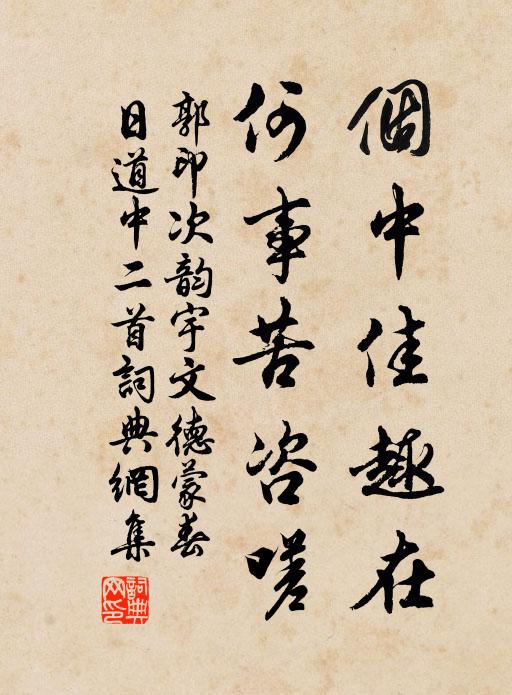 個中佳趣在
何事苦咨嗟
郭印次韵宇文德蒙春
日道中二首詞典網集
詞典
網印